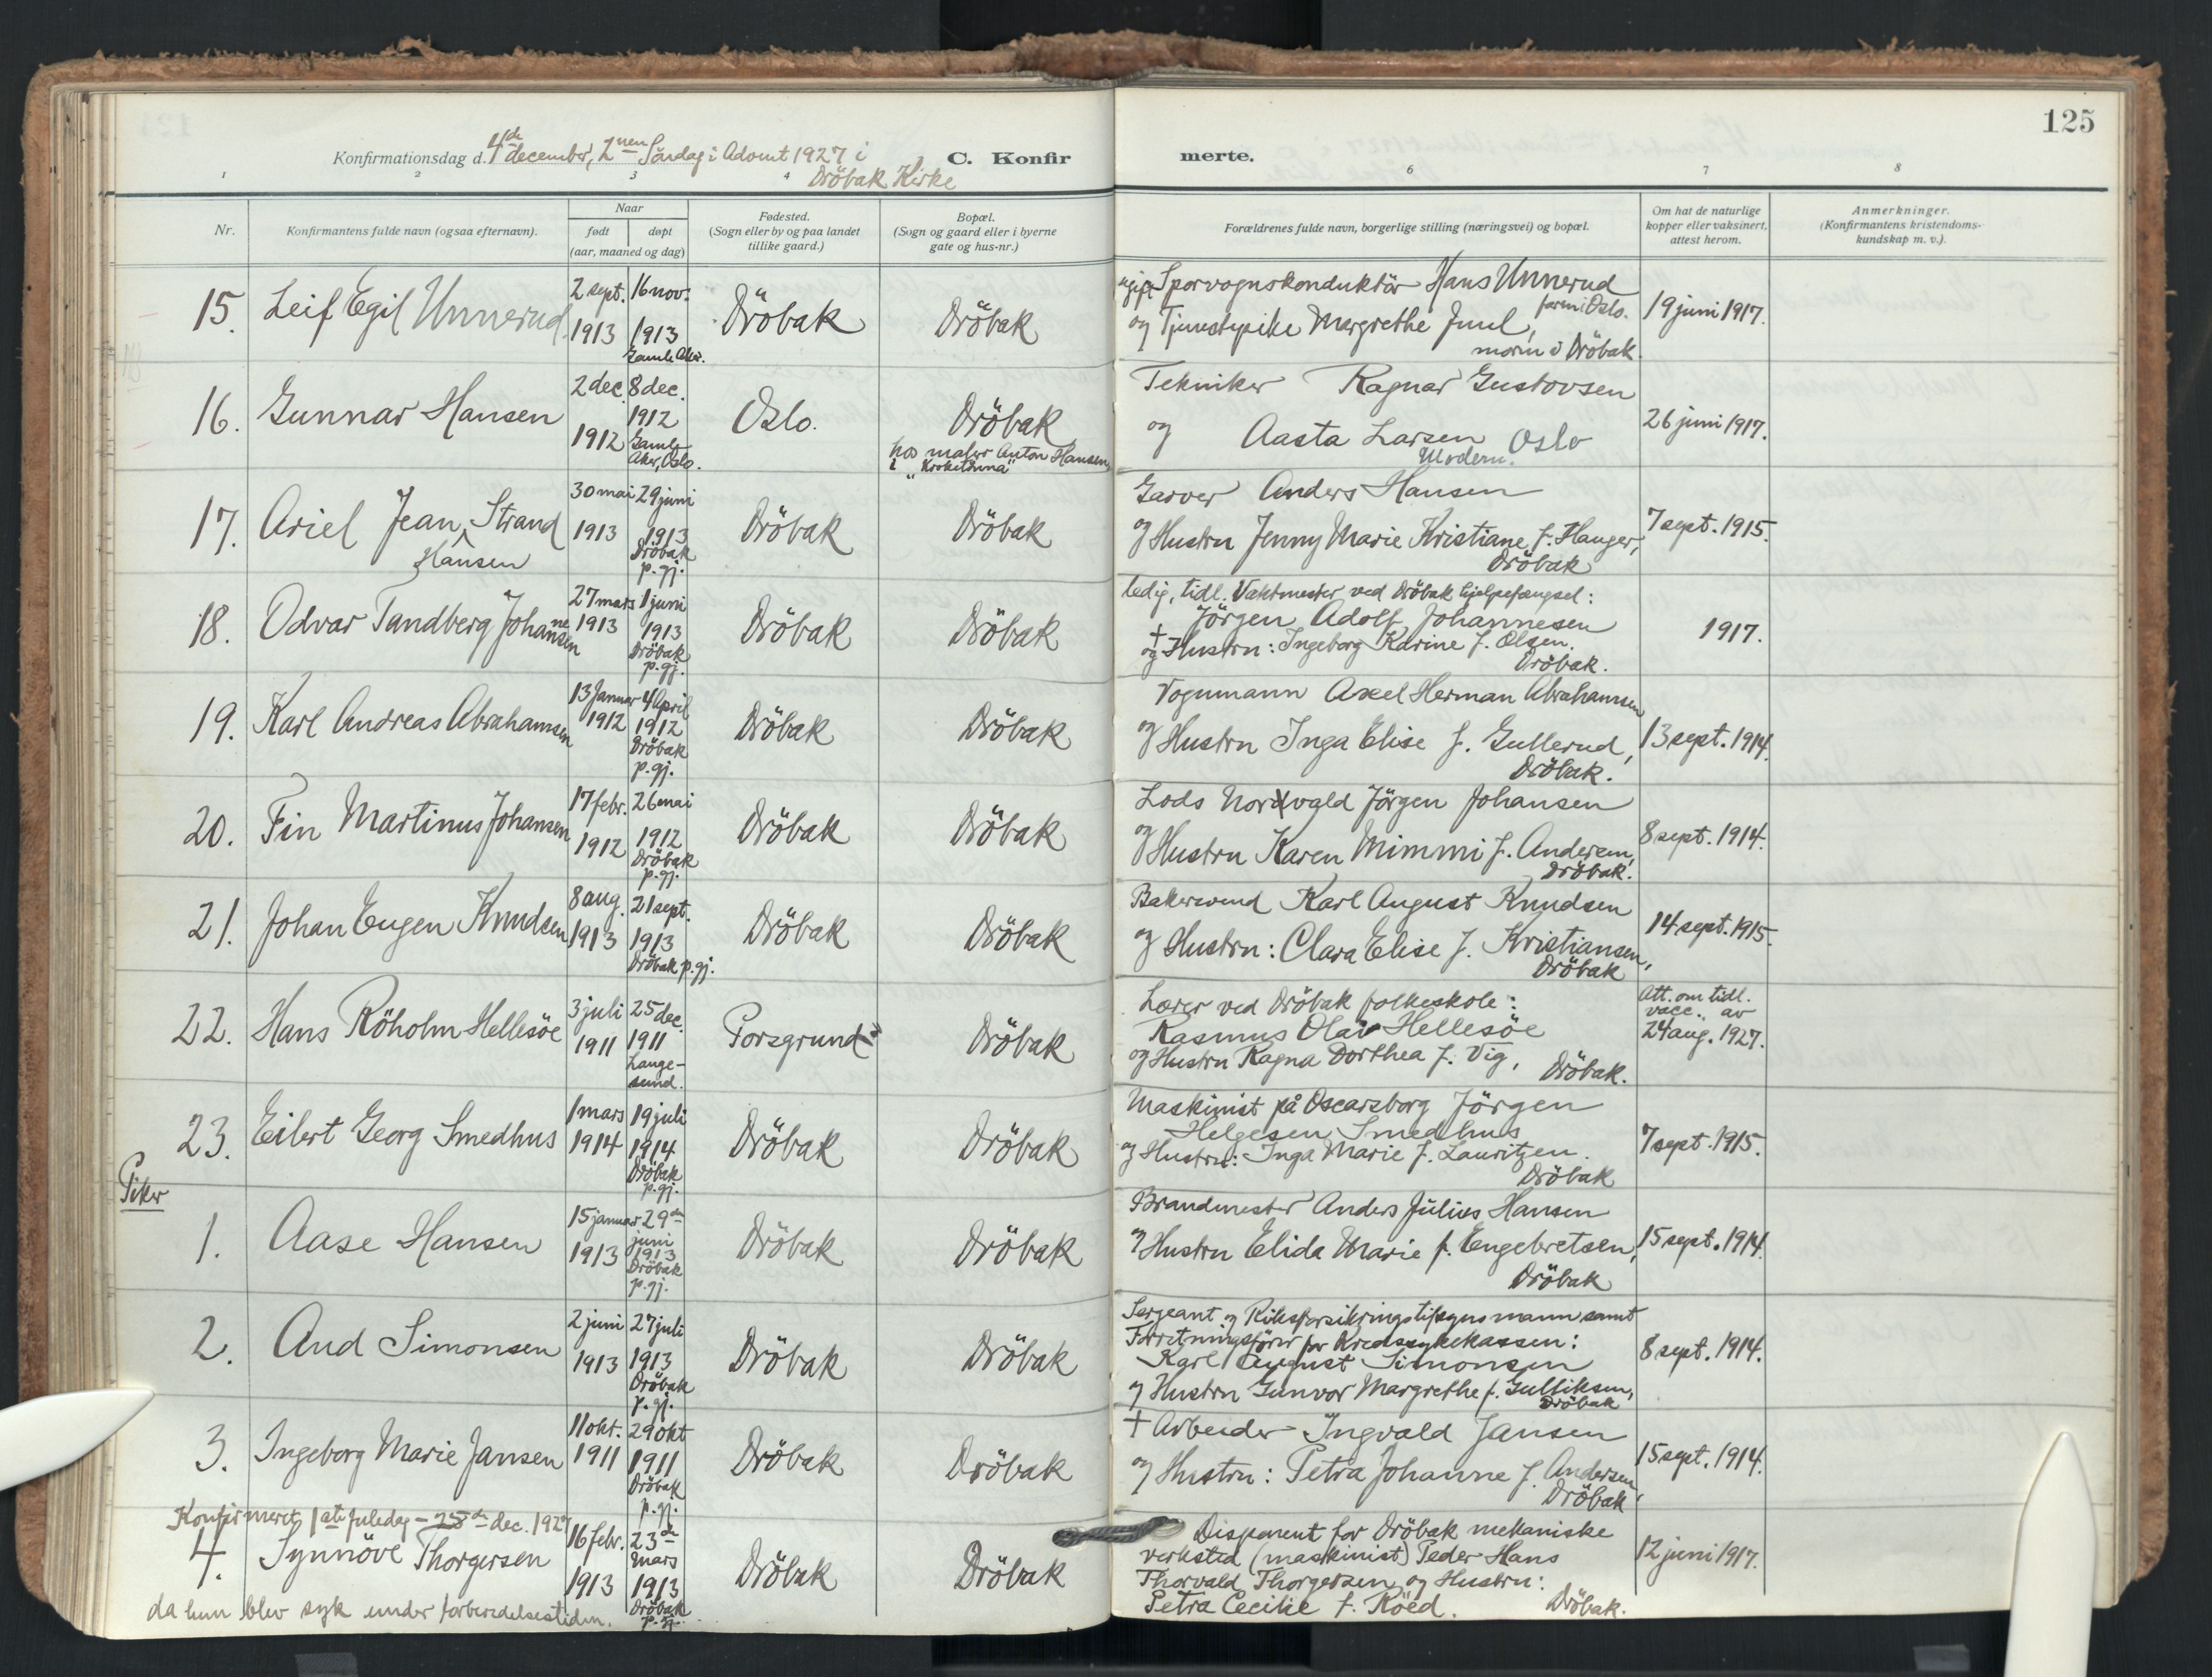 125
Konfirmationsdag d. 4de december, 2nen Söndag i Advent 1927 i
Dröbak Kirke
C. Konfirmerte.
1 2 3 4 6 7 8
Nr.
Konfirmantens fulde navn (ogsaa efternavn).
Naar
født døpt
(aar, maaned og dag)
Fødested.
(Sogn eller by og paa landet
tillike gaard.)
Bopæl.
(Sogn og gaard eller i byerne
gate og hus-nr.)
Forældrenes fulde navn, borgerlige stilling (næringsvei) og bopæl.
Om hat de naturlige
kopper eller vaksinert,
attest herom.
Anmerkninger.
(Konfirmantens kristendoms-
kundskap m. v.).
15. Leif Egil Unnerud
2 sept. 1913
16 nov. 1913
Gamle Aker.
Dröbak
Dröbak
ugift Sporvognskonduktör Hans Unnerud
faren i Oslo.
og Tjenestepike Margrethe Juul,
moren i Dröbak
19 juni 1917.
16. Gunnar Hansen
2 dec. 1912
8 dec. 1912
Gamle
Aker, Oslo.
Oslo.
Dröbak
hos maler Anton Hansen
i "Kroketönna"
Tekniker Ragnar Gustovsen
og Aasta Larsen Oslo
Modern.
26 juni 1917.
17. Ariel Jean Strand
Hansen
30 mai 1913
29 juni 1913
Dröbak
p. gj.
Dröbak
Dröbak
Garver Anders Hansen
og Hustru Jenny Marie Kristiane f. Hauger,
Dröbak
7 sept. 1915.
18. Odvar Tandberg Johannesen
27 mars 1913
1 juni 1913
Dröbak
p. gj.
Dröbak
Dröbak
ledig, tidl. Vaktmester ved Dröbak hjelpefængsel:
Jörgen Adolf Johannesen
† og Hustru: Ingeborg Karine f. Olsen.
Dröbak.
1917.
19. Karl Andreas Abrahamsen
13 Januar 1912
4 April 1912
Dröbak
p. gj.
Dröbak
Dröbak
Vognmann Axel Herman Abrahamsen
og Hustru Inga Elise f. Gullerud,
Dröbak.
13 sept. 1914.
20. Fin Martinus Johansen
17 febr. 1912
26 mai 1912
Dröbak
p. gj.
Dröbak
Dröbak
Lods Norvald Jörgen Johansen
og Hustru Karen Mimmi f. Andersen,
Dröbak.
8 sept. 1914.
21. Johan Eugen Knudsen
8 aug. 1913
21 sept. 1913
Dröbak p. gj.
Dröbak
Dröbak
Bakersvend Karl August Knudsen
og Hustru: Clara Elise f. Kristiansen,
Dröbak
14 sept. 1915.
22. Hans Röholm Hellesöe
3 juli 1911
25 dec. 1911
Lange-
sund.
Porsgrund
Dröbak
Lærer ved Dröbak folkeskole:
Rasmus Olav Hellesöe
og Hustru Ragna Dorthea f. Vig,
Dröbak.
Att. om tidl.
vacc. av
24 aug. 1927.
23. Eilert Georg Smedhus
1 mars 1914
19 juli 1914
Dröbak
p. gj.
Dröbak
Dröbak
Maskinist på Oscarsborg Jörgen
Helgesen Smedhus
og Hustru: Inga Marie f. Lauritzen.
Dröbak
7 sept. 1915.
Piker
1. Aase Hansen
15 januar 1913
29de juni 1913
Dröbak
p. gj.
Dröbak
Dröbak
Brandmester Anders Julius Hansen
og Hustru Elida Marie f. Engebretsen,
Dröbak
15 sept. 1914.
2. Aud Simonsen
2 juni 1913
27 juli 1913
Dröbak
p. gj.
Dröbak
Dröbak
Sergeant og Riksforsikringstilsynsmann samt
Forretningsförer for Kredssykekassen:
Karl August Simonsen
og Hustru Gunvor Margrethe f. Gulliksen,
Dröbak
8 sept. 1914.
3. Ingeborg Marie Jansen
11 okt. 1911
29 okt 1911
Dröbak
p. gj.
Dröbak
Dröbak
† Arbeider Ingvald Jansen
og Hustru: Petra Johanne f. Andersen,
Dröbak
15 sept. 1914.
Konfirmeret 1ste Juledag - 25de dec. 1927
4. Synnöve Thorgersen
16 febr. 1913
23de mars 1913
Dröbak
p. gj.
Dröbak
Dröbak
Disponent for Dröbak mekaniske
verksted (maskinist) Peder Hans
Thorvald Thorgersen og Hustru:
Petra Cecilie f. Röed.
Dröbak.
12 juni 1917.
da hun blev syk under forberedelsestiden.